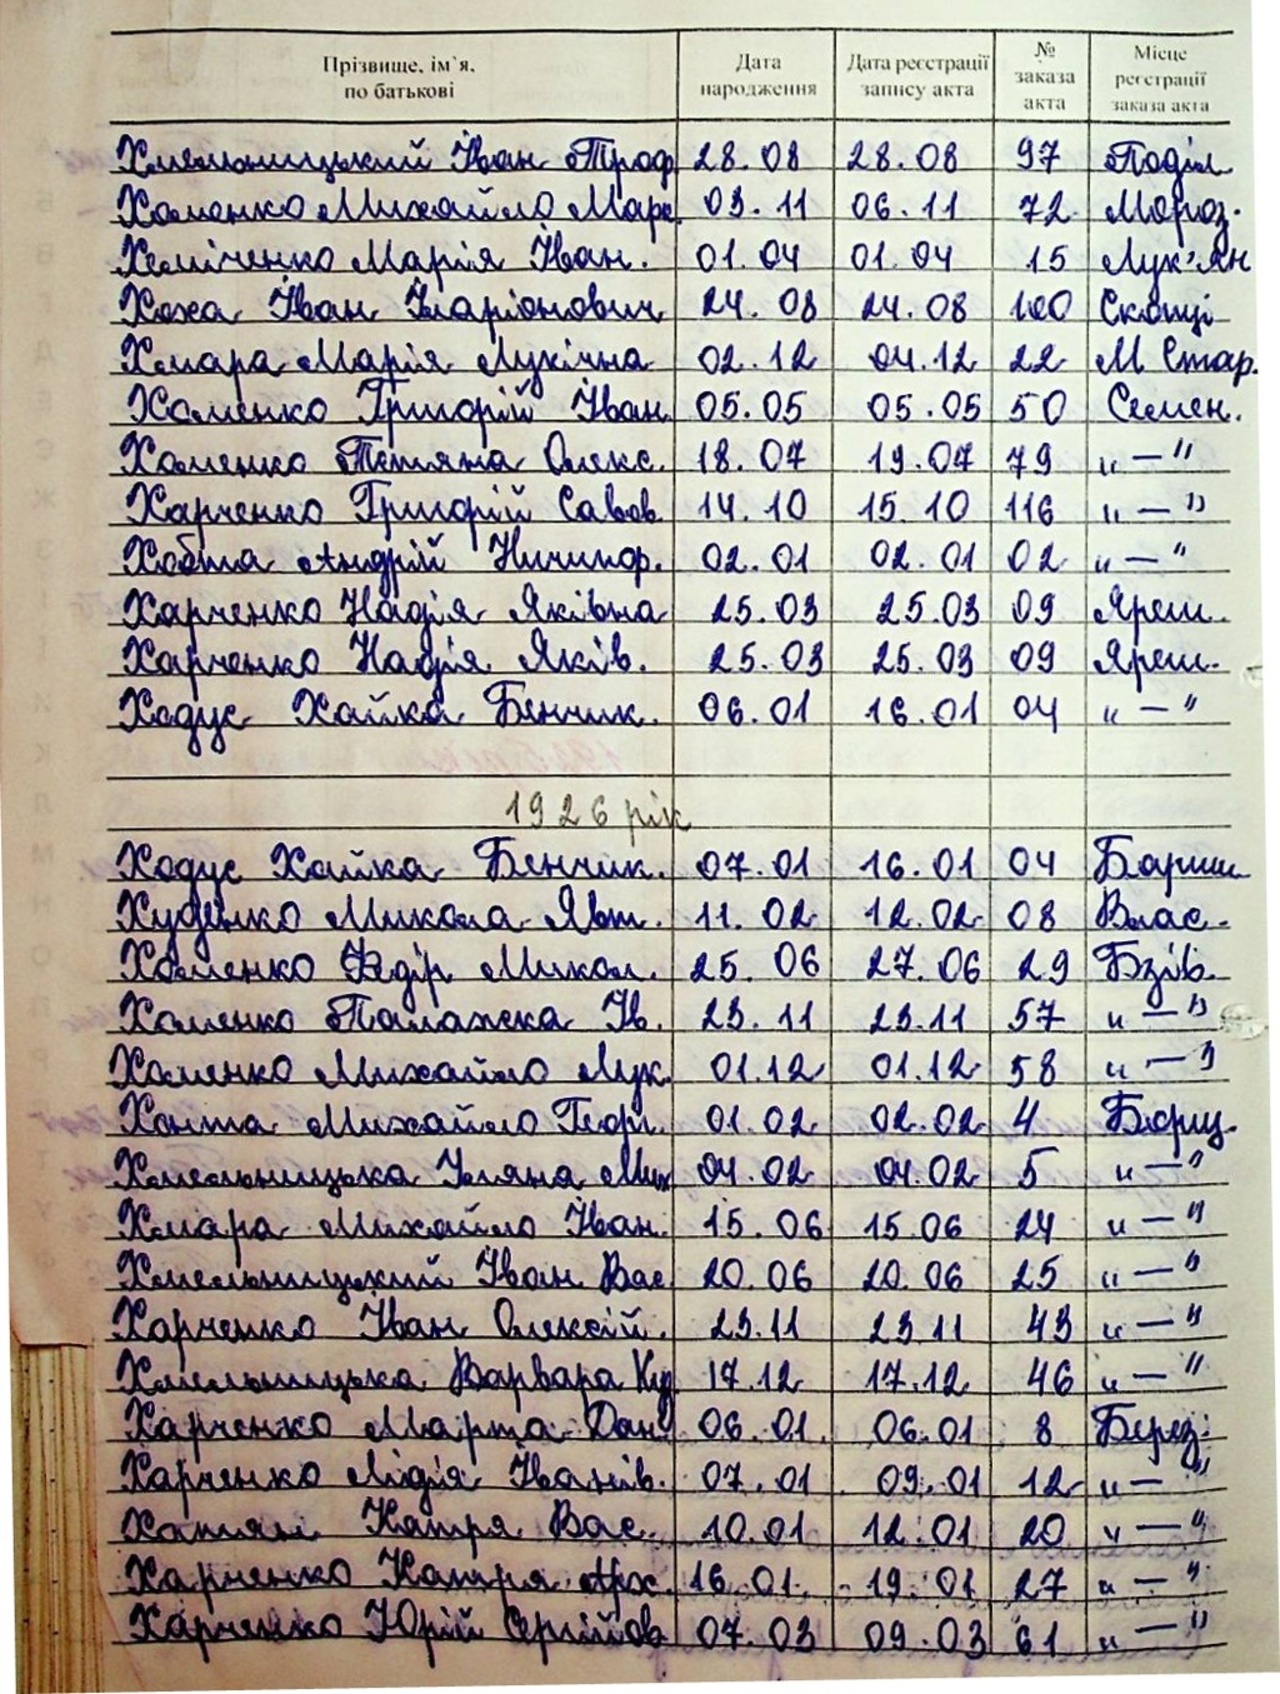 Прізвище, ім`я, по батькові Дата народження Дата реєстрації запису акта № заказа акта Місце реєстрації заказа акта
Хмельницький Іван Троф. 28.08 28.08 97 Поділ
Хоменко Михайло Марк. 03.11 06.11 72 Мороз.
Хеміченко Марія Іван. 01.04 01.04 15 Лук'ян
Хоха Іван Іларіонович 24.08 24.08 100 Скопці
Хмара Марія Лукічна 02.12 04.12 22 М Стар.
Хоменко Григорій Іван. 05.05 05.05 50 Семен.
Хоменко Тетяна Олекс. 18.07 19.07 79 " — "
Харченко Григорій Савов. 14.10 15.10 116 " — "
Хобта Андрій Ничипор. 02.01 02.01 02 " — "
Харченко Надія Яківна 25.03 25.03 09 Яреш.
Харченко Надія Яків. 25.03 25.03 09 Яреш.
Ходус Хайка Бенчик. 06.01 16.01 04 " — "
1926 рік
Ходус Хайка Бенчик. 07.01 16.01 04 Бариш
Худенко Микола Явт. 11.02 12.02 08 Влас.
Хоменко Федір Микол. 25.06 27.06 29 Бзів.
Хоменко Палажка Ів. 23.11 23.11 57 " — "
Хоменко Михайло Лук. 01.12 01.12 58 " — "
Хонта Михайло Георг. 01.02 02.02 4 Борщ.
Хмельницька Уляна Мих 04.02 04.02 5 " — "
Хмара Михайло Іван. 15.06 15.06 24 " — "
Хмельницький Іван Вас 20.06 20.06 25 " — "
Харченко Іван Олексій. 23.11 23.11 43 " — "
Хмельницька Варвара 17.12 17.12 46 " — "
Харченко Марта Дан. 06.01. 06.01 8 Берез.
Харченко Лідія Іванів. 07.01 09.01 12 " — "
Хатян Катря Вас. 10.01 12.01 20 " — "
Харченко Катря Арх. 16.01. 19.01 27 " — "
Харченко Юрій Сергійов 07.03 09.03 61 " — "